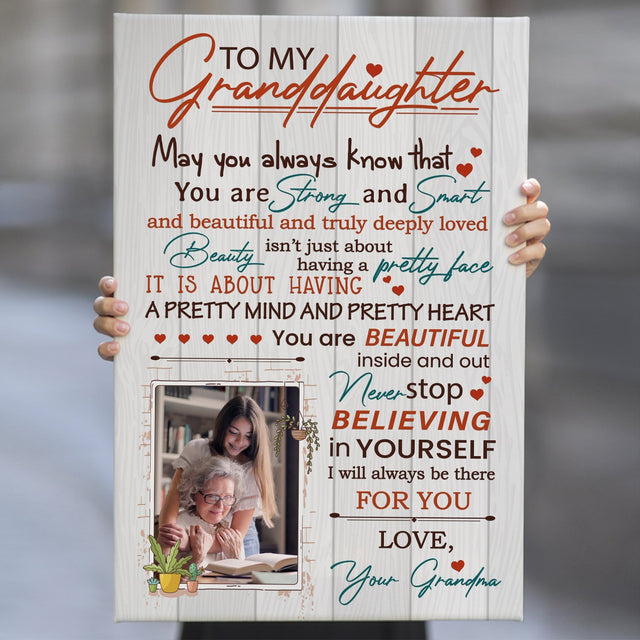 TO MY
Granddaughter
May you always know that
You are Strong and Smart
and beautiful and truly deeply loved
Beauty isn't just about
having a pretty face
IT IS ABOUT HAVING
A PRETTY MIND AND PRETTY HEART
You are BEAUTIFUL
inside and out
Never stop
BELIEVING
in YOURSELF
I will always be there
FOR YOU
LOVE,
Your Grandma